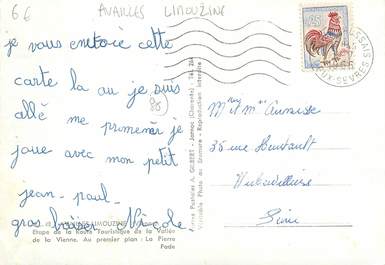 66
AVAILLES LIMOUZINE
je vous envoie cette
carte la au je suis
allé me promener je
joue avec mon petit
jean-paul
gros baiser Nicole
86
AVAILLES-LIMOUZINE
Etape de la Route Touristique de la Vallée
de la Vienne. Au premier plan : La Pierre
Fade
Cartes Postales A. GILBERT - Jarnac (Charente)
Véritable Photo au Bromure - Reproduction interdite
DEUX-SEVRES
Mr et Mme
35 rue
Aubervilliers
Seine